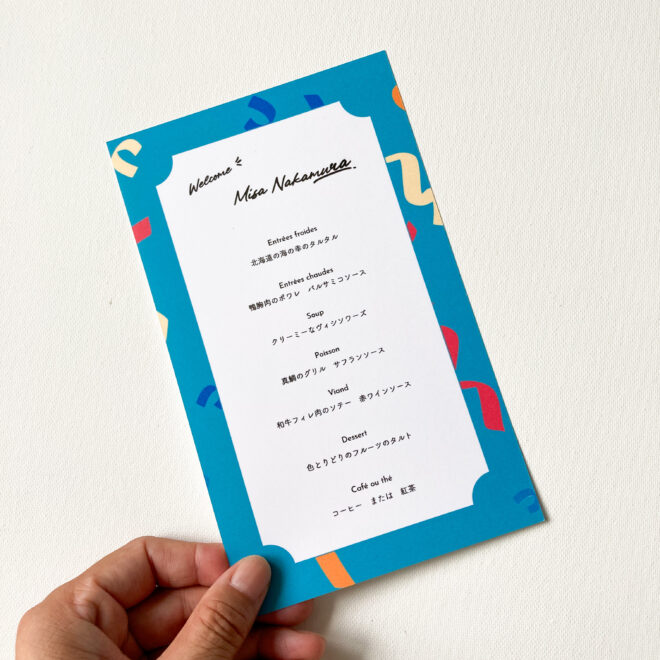 Welcome
Misa Nakamura.
Entrées froides
北海道の海の幸のタルタル
Entrées chaudes
鴨胸肉のポワレ バルサミコソース
Soup
クリーミーなヴィシソワーズ
Poisson
真鯛のグリル サフランソース
Viand
和牛フィレ肉のソテー 赤ワインソース
Dessert
色とりどりのフルーツのタルト
Café ou thé
コーヒー または 紅茶